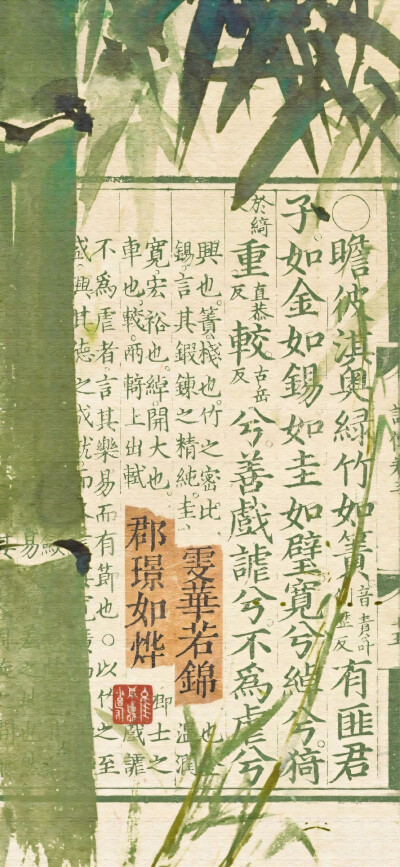 ○瞻彼淇奧綠竹如簀音責有匪君
子如金如錫如圭如璧寬兮綽兮猗
於綺反重直恭反較古岳反兮善戲謔兮不為虐兮
興也。簀棧也。竹之密比、也金
錫言其鍛鍊之精純圭、溫潤
寬宏裕也。綽開大也。卿士之
車也。較兩輢上出軾戲謔
不為虐者言其樂易而有節也○以竹之至
盛興其德之成就而
雯華若錦
郡璟如烨